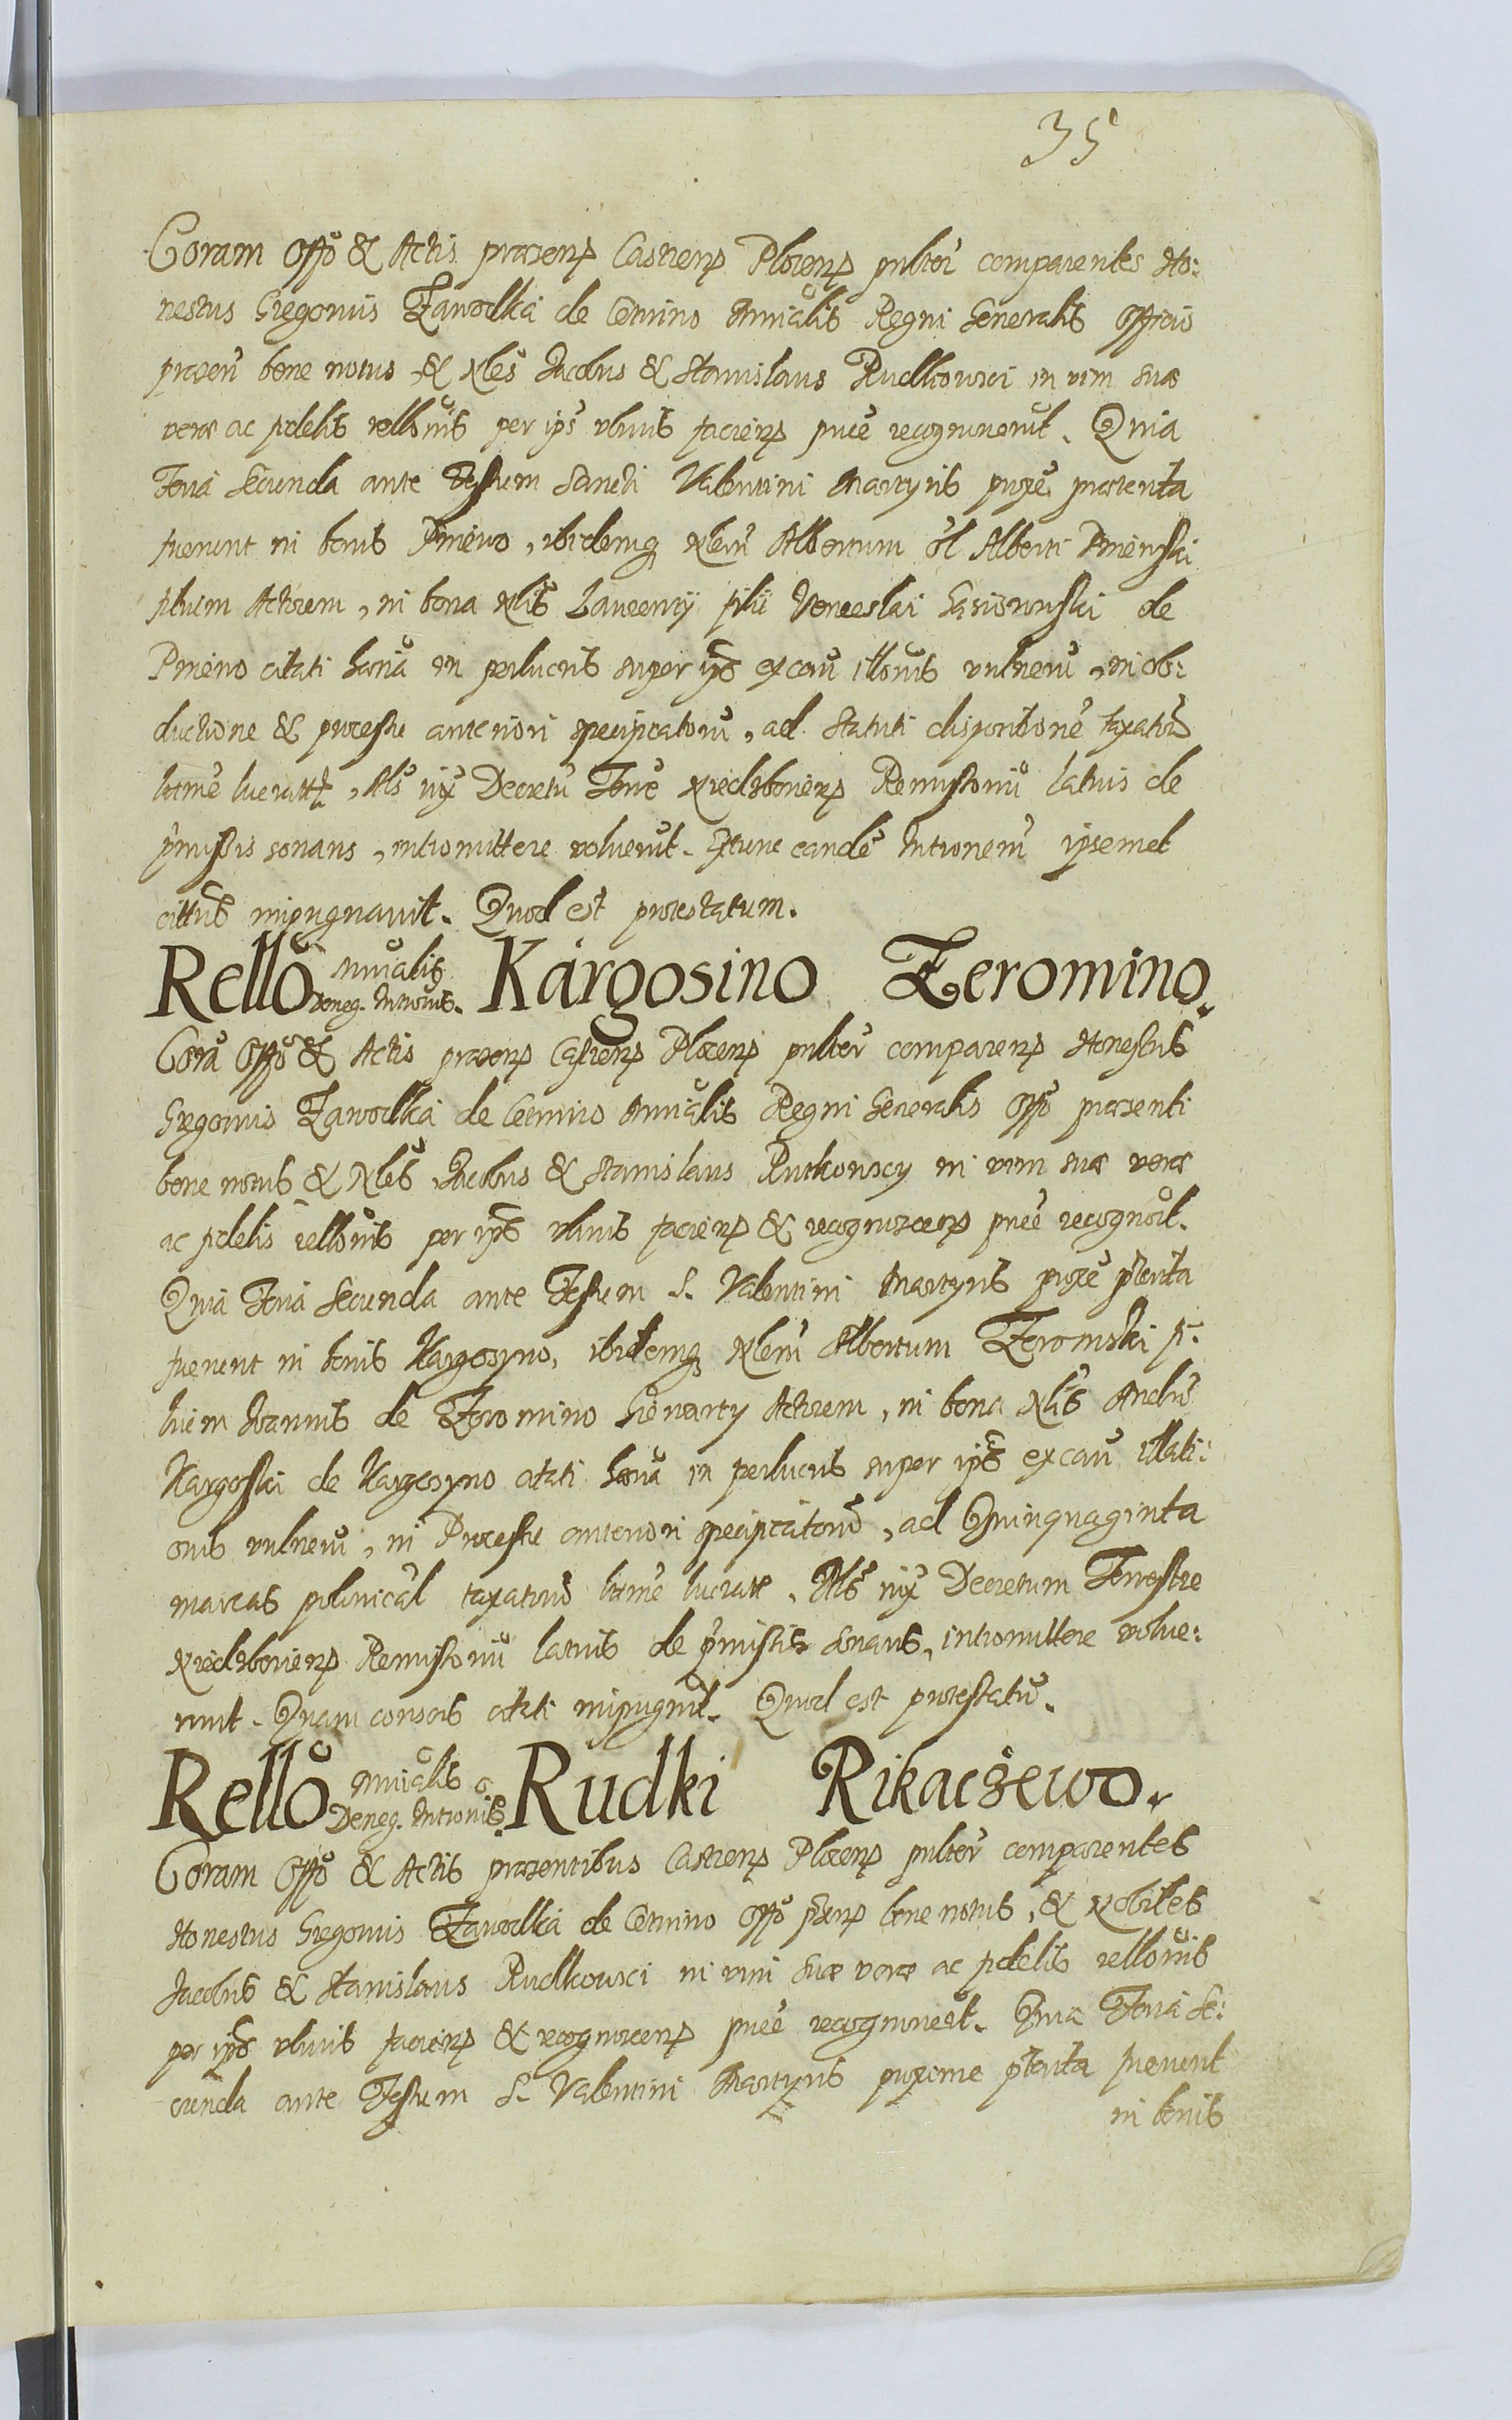 35
Coram Offõ & Actis præsens Castrens Plocens pnlter comparentes Ho:
nestus Gregorius Zawodka de Cetnino Mniãlis Regni Generalis Officio
præsen bene notus & Nles Jacobus & Stanislaus Rudkowsci in vim suæ
veræ ac fidelis rellõnis per ips vltimis faciens pnce recognouerũt. Quia
Feria Secunda ante Festum Sancti Valentini Martyris proxe præterita
fuerunt in bonis Pniewo, ibidemq Nlem Albertum ol Alberti Pniewski
filium Actorem, in bona Nlis Laurentÿ filÿ Venceslai Gasiorowski de
Pniewo citati hæria in perlucris super ipso ex cau illõnis vulneru, in ob:
ductione & processu anteriori specificatoru, ad Statuti dispositione taxatoru
littme lucratt, Als iux Decretu Terre Niedzboriens Remissionũ latius de
pmissis sonans, intromittere voluerũt. Ettunc eande Intronem ipsemet
cittus impugnauit. Quod est protestatum.
Rellõ Mniãlis Deneg. Intronis. Kargosino Zeromino.
Corã Offõ & Actis præsens Castrens Plocens pnlter comparens Honestus
Gregorius Zawodka de Cetnino Mniãlis Regni Generalis Offõ præsenti
bene notus & Nles Jacobus & Stanislaus Rutkowscy in vim suæ veræ
ac fidelis rellõnis per ips vltimis faciens & recognoscens pnce recognoũt.
Quia Feria Secunda ante Festum S. Valentini Martyris proxe pterita
fuerunt in bonis Kargosyno, ibidemq Nlem Albertum Zeromski fi:
lium Joannis de Zeromino Actorem, in bona Nlis Andre
Kargoski de Kargosyno citati hæria in perlucris super ips ex cau illati:
onis vulneru, in Processu anteriori specificatoru, ad Quinquaginta
marcas polonical taxatoru littme lucratt. Als iux Decretum Terrestre
Niedzboriens Remissionũ latius de pmissis sonans, intromittere volue:
runt. Quam consors citati impugnt. Quod est protestatũ.
Rellõ Mniãlis Deneg. Intronis. Rudki Rikaczewo.
Coram Offõ & Actis præsentibus Castrens Plocens pnlter comparentes
Honestus Gregorius Zawodka de Cetnino Offõ præns bene notus, & Nobiles
Jacobus & Stanislaus Rudkowsci in vim suæ veræ ac fidelis rellõnis
per ips vltimis faciens & recognoscens pnce recognouerũt. Quia Feria Se:
cunda ante Festum S. Valentini Martyris proxime pterita fuerunt
in bonis